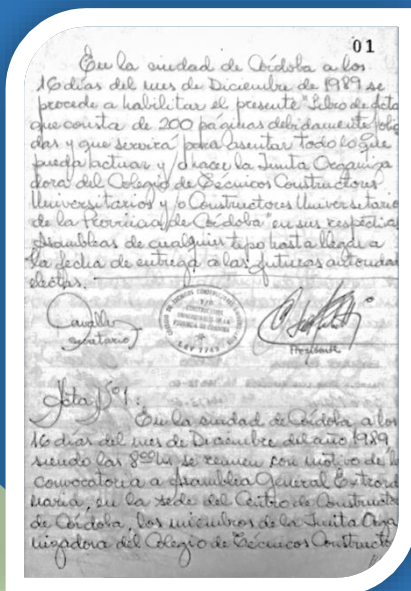 01
En la ciudad de Córdoba a los
16 días del mes de Diciembre de 1989 se
procede a habilitar el presente "Libro de Acta
que consta de 200 páginas debidamente folia
das y que servirá para asentar todo lo que
pueda actuar y/o hacer la Junta Organiza
dora del Colegio de Técnicos Constructores
Universitarios y/o Constructores Universitario
de la Provincia de Córdoba" en sus respectivas
Asambleas de cualquier tipo hasta llegar a
la fecha de entrega a las futuras autoridad
electas.
Cavalla
secretario
Presidente
Acta Nº 1:
En la ciudad de Córdoba, a los
16 días del mes de Diciembre del año 1989,
siendo las 8:00 hs se reunen con motivo de la
convocatoria a Asamblea General Extraord
inaria, en la sede del Centro de Constructore
de Córdoba, los miembros de la Junta Orga
nizadora del Colegio de Técnicos Constructo